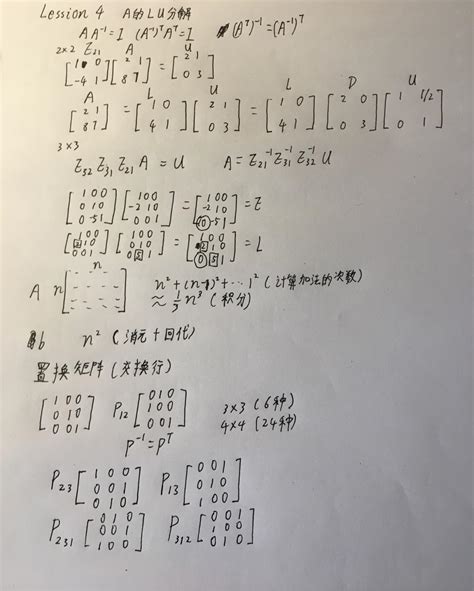 Lession 4 A的LU分解
AA⁻¹=I (A⁻¹)ᵀAᵀ=I (Aᵀ)⁻¹=(A⁻¹)ᵀ
2×2 E₂₁ A U
[1 0; -4 1] [2 1; 8 7] = [2 1; 0 3]
A L U L D U
[2 1; 8 7] = [1 0; 4 1] [2 1; 0 3] = [1 0; 4 1] [2 0; 0 3] [1 1/2; 0 1]
3×3
E₃₂ E₃₁ E₂₁ A = U A = E₂₁⁻¹ E₃₁⁻¹ E₃₂⁻¹ U
[1 0 0; 0 1 0; 0 -5 1] [1 0 0; -2 1 0; 0 0 1] = [1 0 0; -2 1 0; 10 -5 1] = E
[1 0 0; 2 1 0; 0 0 1] [1 0 0; 0 1 0; 0 5 1] = [1 0 0; 2 1 0; 0 5 1] = L
n
A n[ ] n²+(n-1)²+…1² (计算加法的次数)
≈ 1/3 n³ (积分)
b n² (消元+回代)
置换矩阵(交换行)
[1 0 0; 0 1 0; 0 0 1] P₁₂ [0 1 0; 1 0 0; 0 0 1] 3×3 (6种)
4×4 (24种)
P⁻¹=Pᵀ
P₂₃ [1 0 0; 0 0 1; 0 1 0] P₁₃ [0 0 1; 0 1 0; 1 0 0]
P₂₃₁ [0 1 0; 0 0 1; 1 0 0] P₃₁₂ [0 0 1; 1 0 0; 0 1 0]